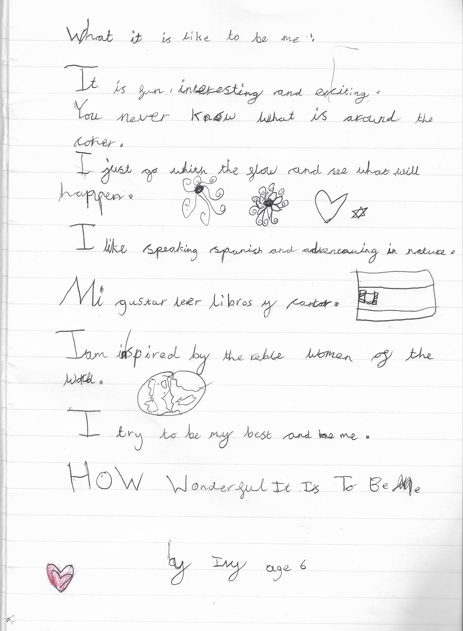 What it is like to be me!
It is fun, interesting and exciting.
You never know what is around the
coher.
I just go whith the flow and see what will
happen.
I like speaking spanish and in nature.
Mi gustar leer libros y cantar.
I am inspired by the reble women of the
world.
I try to be my best and be me.
HOW Wonderful It Is To Be Me
by Ivy age 6